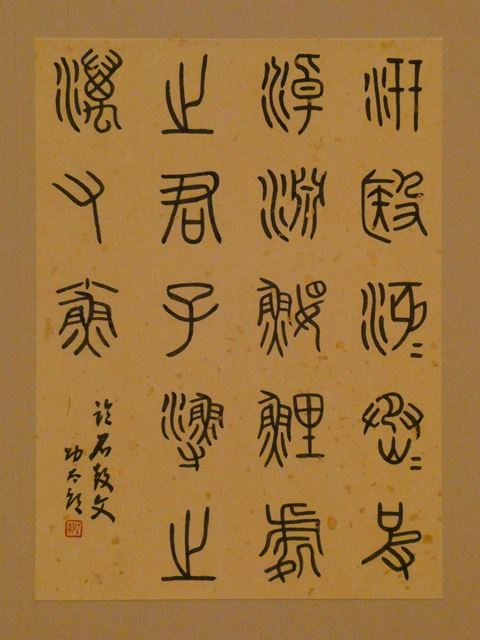 汧殹沔〻丞〻皮
淖淵鰋鯉處
之君子漁之
澫又小魚
臨石鼓文